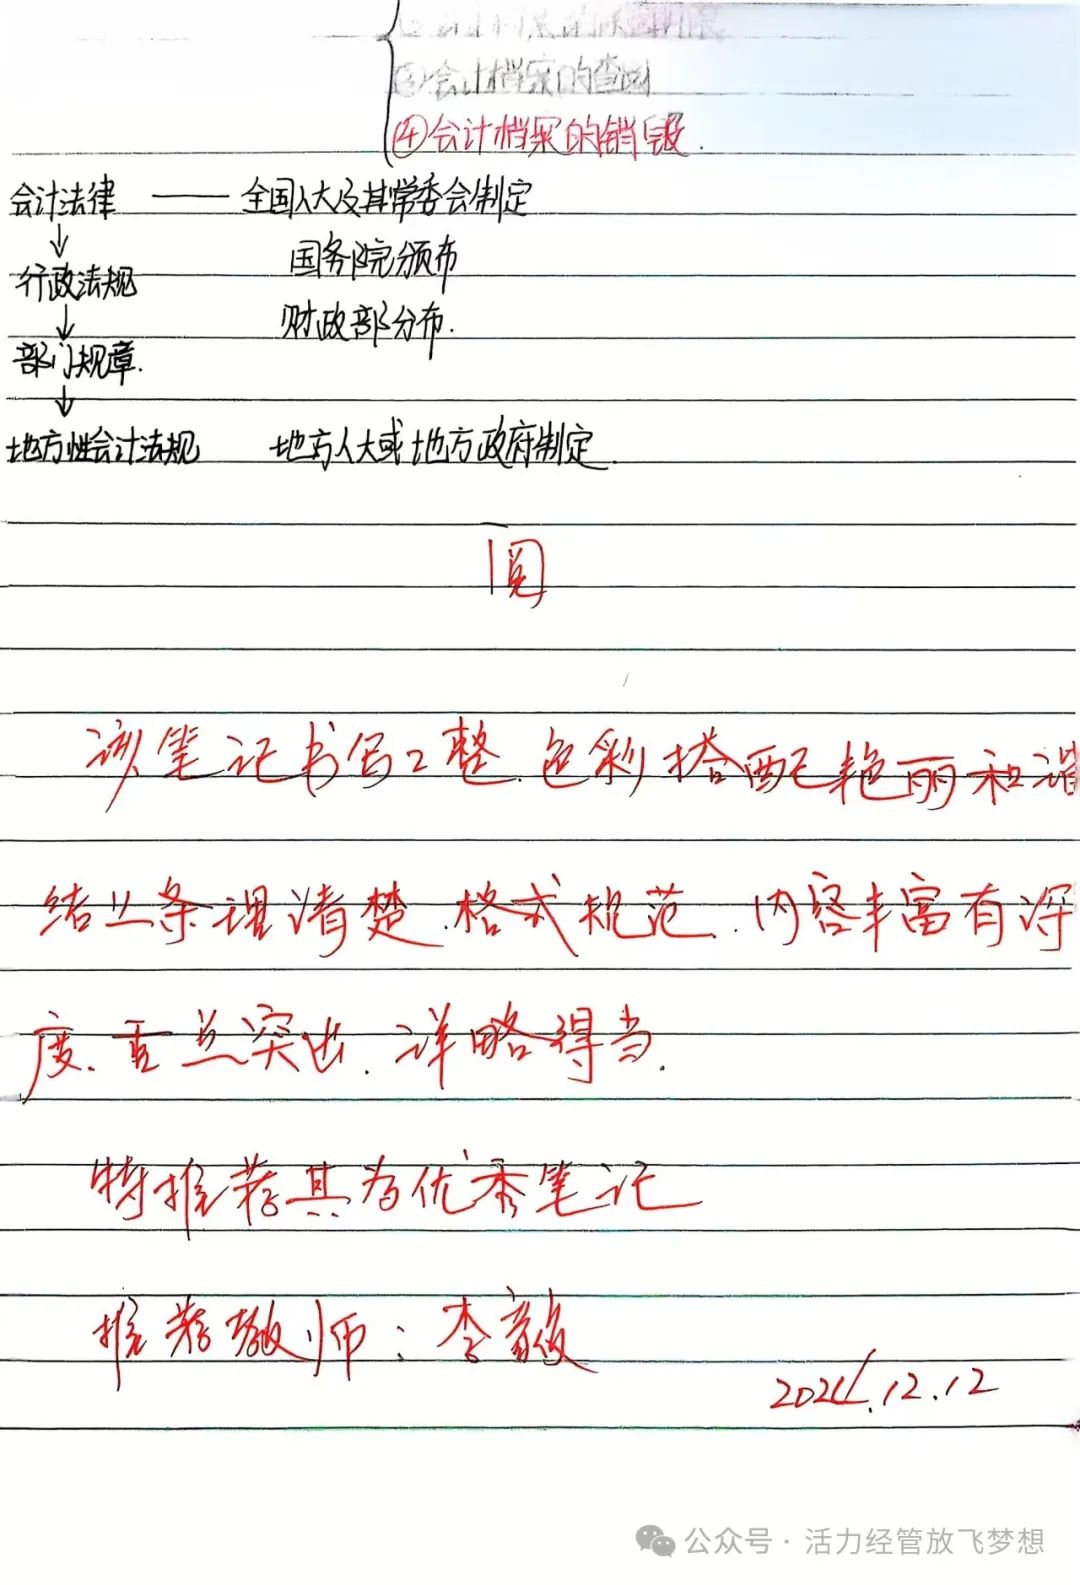 (3)会计档案的查阅
(4)会计档案的销毁.
会计法律 —— 全国人大及其常委会制定
↓
国务院颁布
行政法规
↓
财政部分布.
部门规章.
↓
地方性会计法规 地方人大或地方政府制定.
阅
该笔记书写工整.色彩搭配艳丽和谐
条理清楚.格式规范.内容丰富有深
度.重点突出.详略得当.
特推荐其为优秀笔记
推荐教师:李
2024.12.12
公众号·活力经管放飞梦想